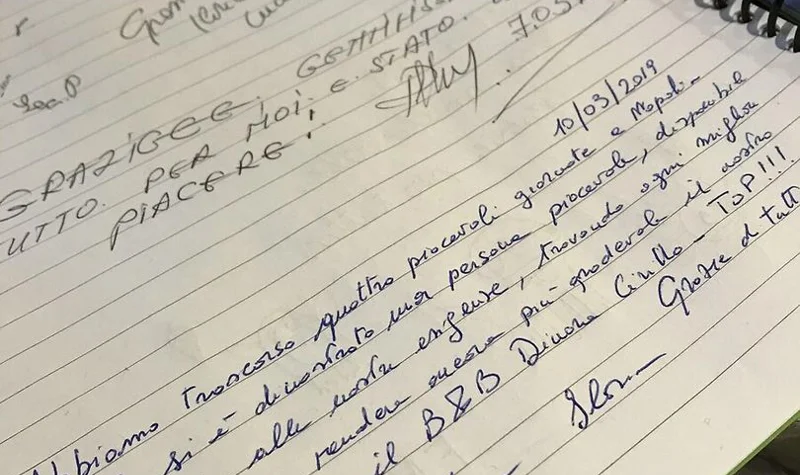 GRAZIGEE, GENTILISS
UTTO. PER MOI. E STATO.
PIACERE!
7.03.
10/03/2019
Abbiamo trascorso quattro piacevoli giornate a Napoli -
si è dimostrato una persona piacevole, disponibile
alle nostre esigenze, trovando ogni miglior
rendere ancora più gradevole il nostro
il B&B Dimora Cirillo - TOP!!!
Grazie di tutt